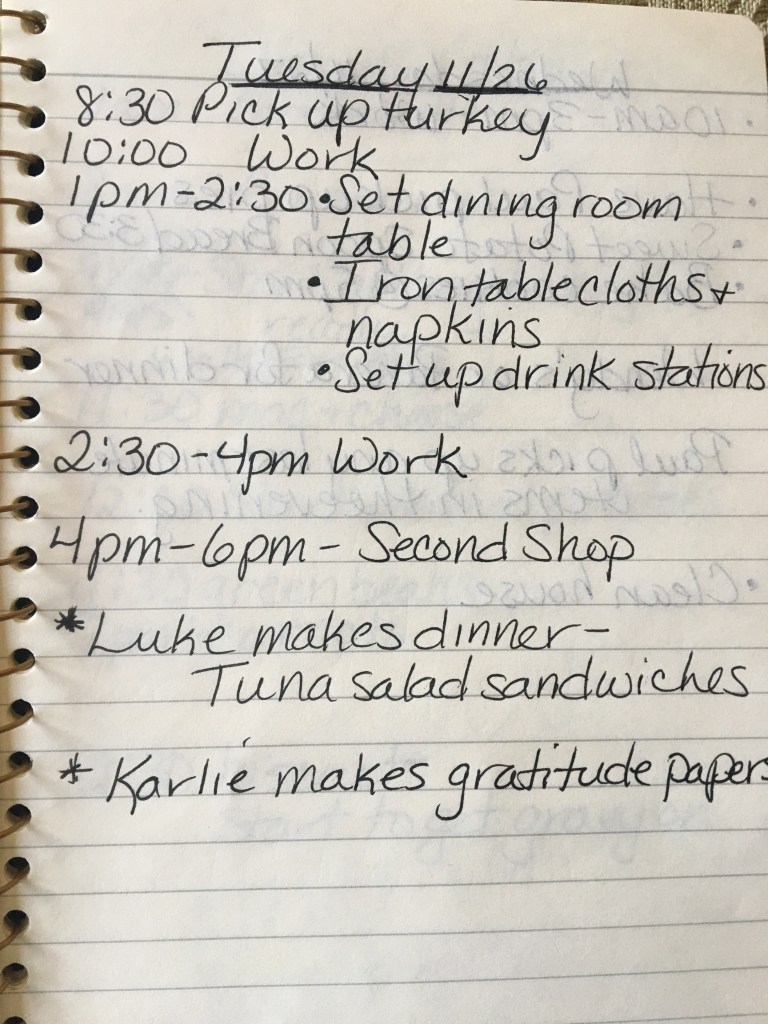 Tuesday 11/26
8:30 Pick up turkey
10:00 Work
1pm-2:30 • Set dining room
table
• Iron tablecloths +
napkins
• Set up drink stations
2:30-4pm Work
4pm-6pm- Second Shop
* Luke makes dinner-
Tuna salad sandwiches
* Karlie makes gratitude papers